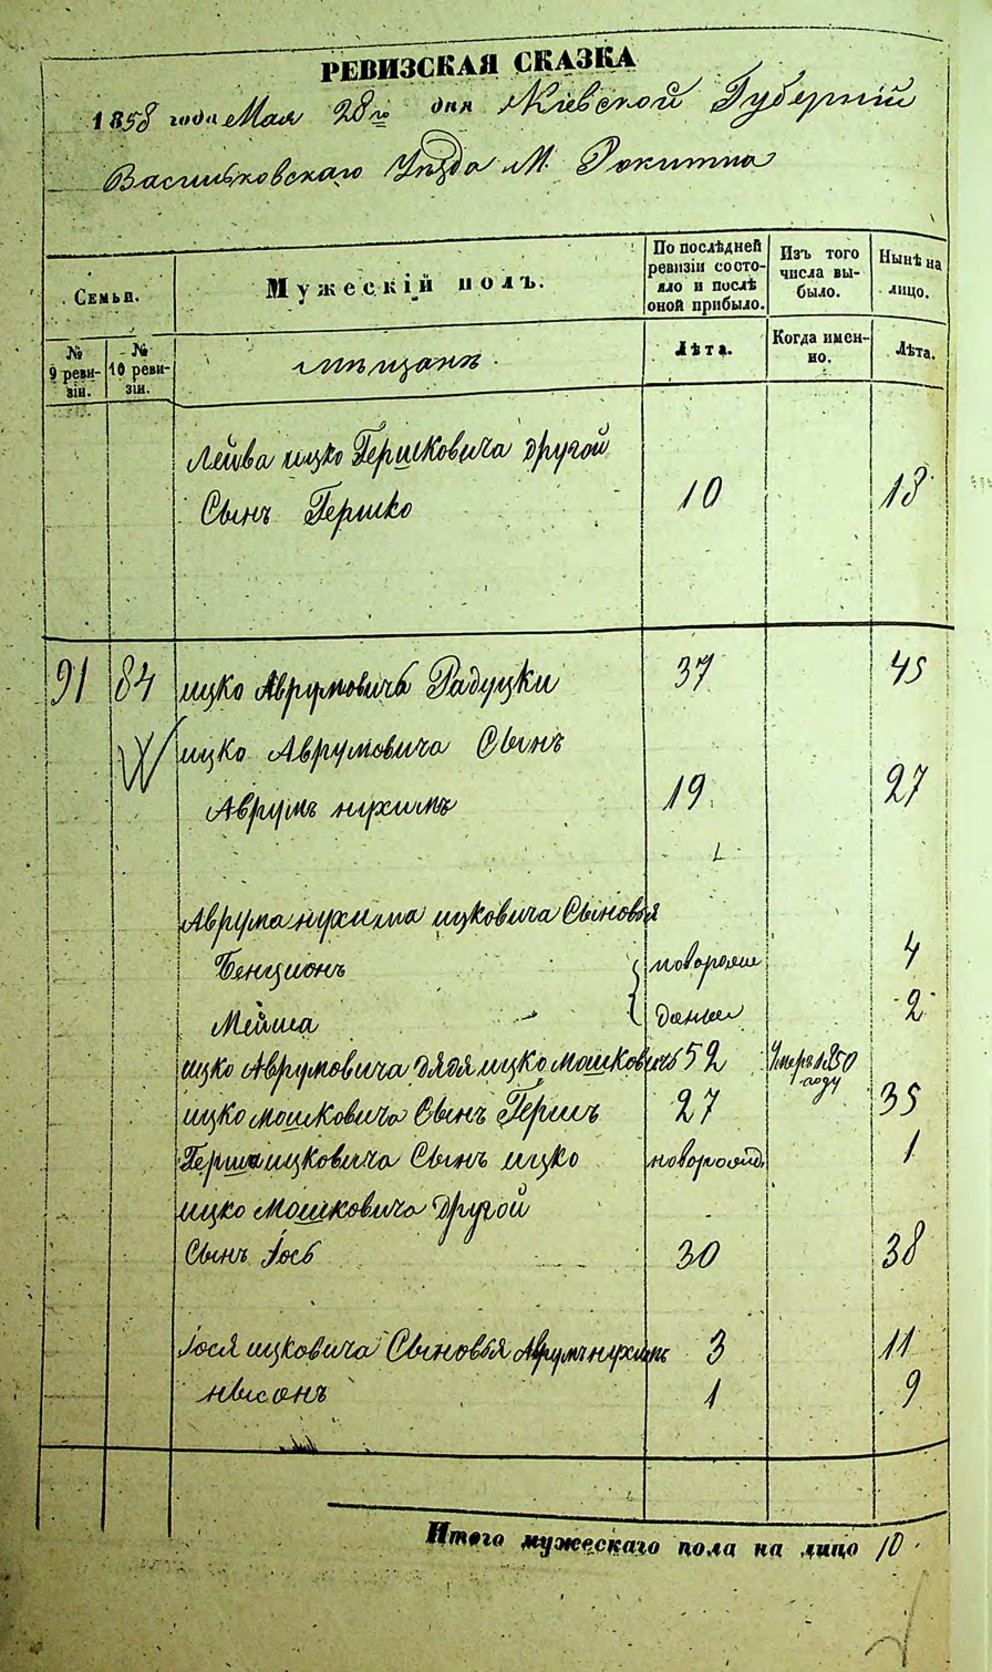 РЕВИЗСКАЯ СКАЗКА
1858 года Мая 28го дня Кіевской Губерніи
Васильковскаго Уѣзда М. Рокитна
Семьи.
Мужескій полъ.
По послѣдней ревизіи состояло и послѣ оной прибыло.
Изъ того числа выбыло.
Нынѣ на лицо.
№ 9 ревизіи.
№ 10 ревизіи.
мѣщанъ.
Лѣта.
Когда именно.
Лѣта.
Лейва ицко Гершковича другой
Сынъ Гершко 10 18
91 84 ицко Аврумовичъ Радуцки 37 45
ицко Аврумовича Сынъ
Аврумъ нухимъ 19 27
Аврума нухима ицковича Сыновья
Бенционъ новорож 4
Мейша денные 2
ицко Аврумовича дядя ицко мошковичъ 52 Умеръ 1850 году
ицко мошковича Сынъ Гершъ 27 35
Герша ицковича Сынъ ицко новорожд. 1
ицко мошковича другой
Сынъ Іось 30 38
Іося ицковича Сыновья Аврумъ нухимъ 3 11
нысонъ 1 9
Итого мужескаго пола на лицо 10.